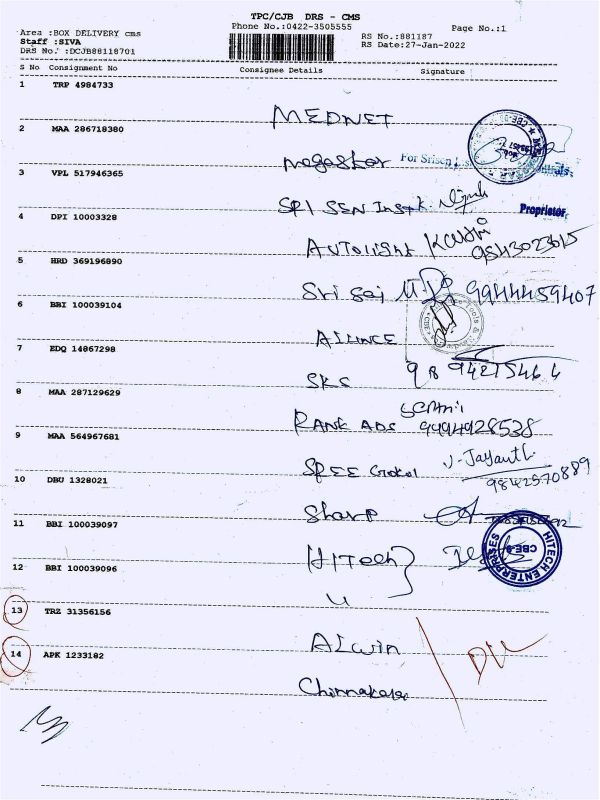 TPC/CJB DRS - CMS
Phone No.:0422-3505555
Page No.:1
Area :BOX DELIVERY cms
Staff :SIVA
DRS No.: DCJB88118701
RS No.:881187
RS Date:27-Jan-2022
S No Consignment No Consignee Details Signature
1 TRP 4984733
MEDNET
2 MAA 286718380
megastar For Srisen
3 VPL 517946365
SRI SEN Proprietor
4 DPI 10003328
AUTOLIGHT
5 HRD 369196890
Sri Sai 9944459407
6 BBI 100039104
7 EDQ 14867298
SKS
8 MAA 287129629
RANK ADS 9994928538
9 MAA 564967681
SREE Gokul V-Jayanth
9842570889
10 DBU 1328021
Sharp
11 BBI 100039097
HITech
HITECH ENTERPRISES
CBE-9
12 BBI 100039096
13 TRZ 31356156
Alwin
14 APK 1233182